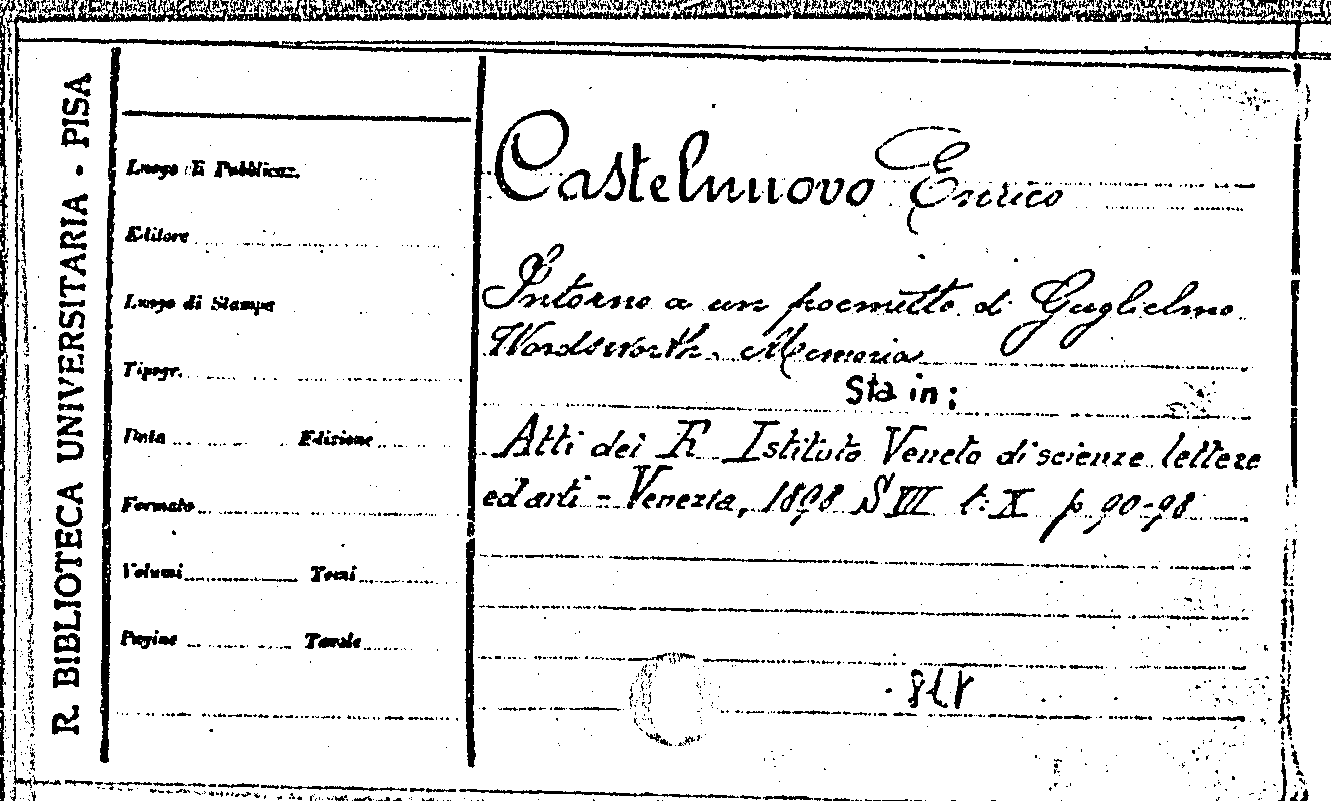 R. BIBLIOTECA UNIVERSITARIA - PISA
Luogo di Pubblicaz.
Editore
Luogo di Stampa
Tipogr.
Data Edizione
Formato
Volumi Tomi
Pagine Tavole
Castelnuovo Enrico
Intorno a un poemetto di Guglielmo
Wordsworth. Memoria
Sta in:
Atti del R Istituto Veneto di scienze lettere
ed arti - Venezia, 1898 S VII t. X p 90-98